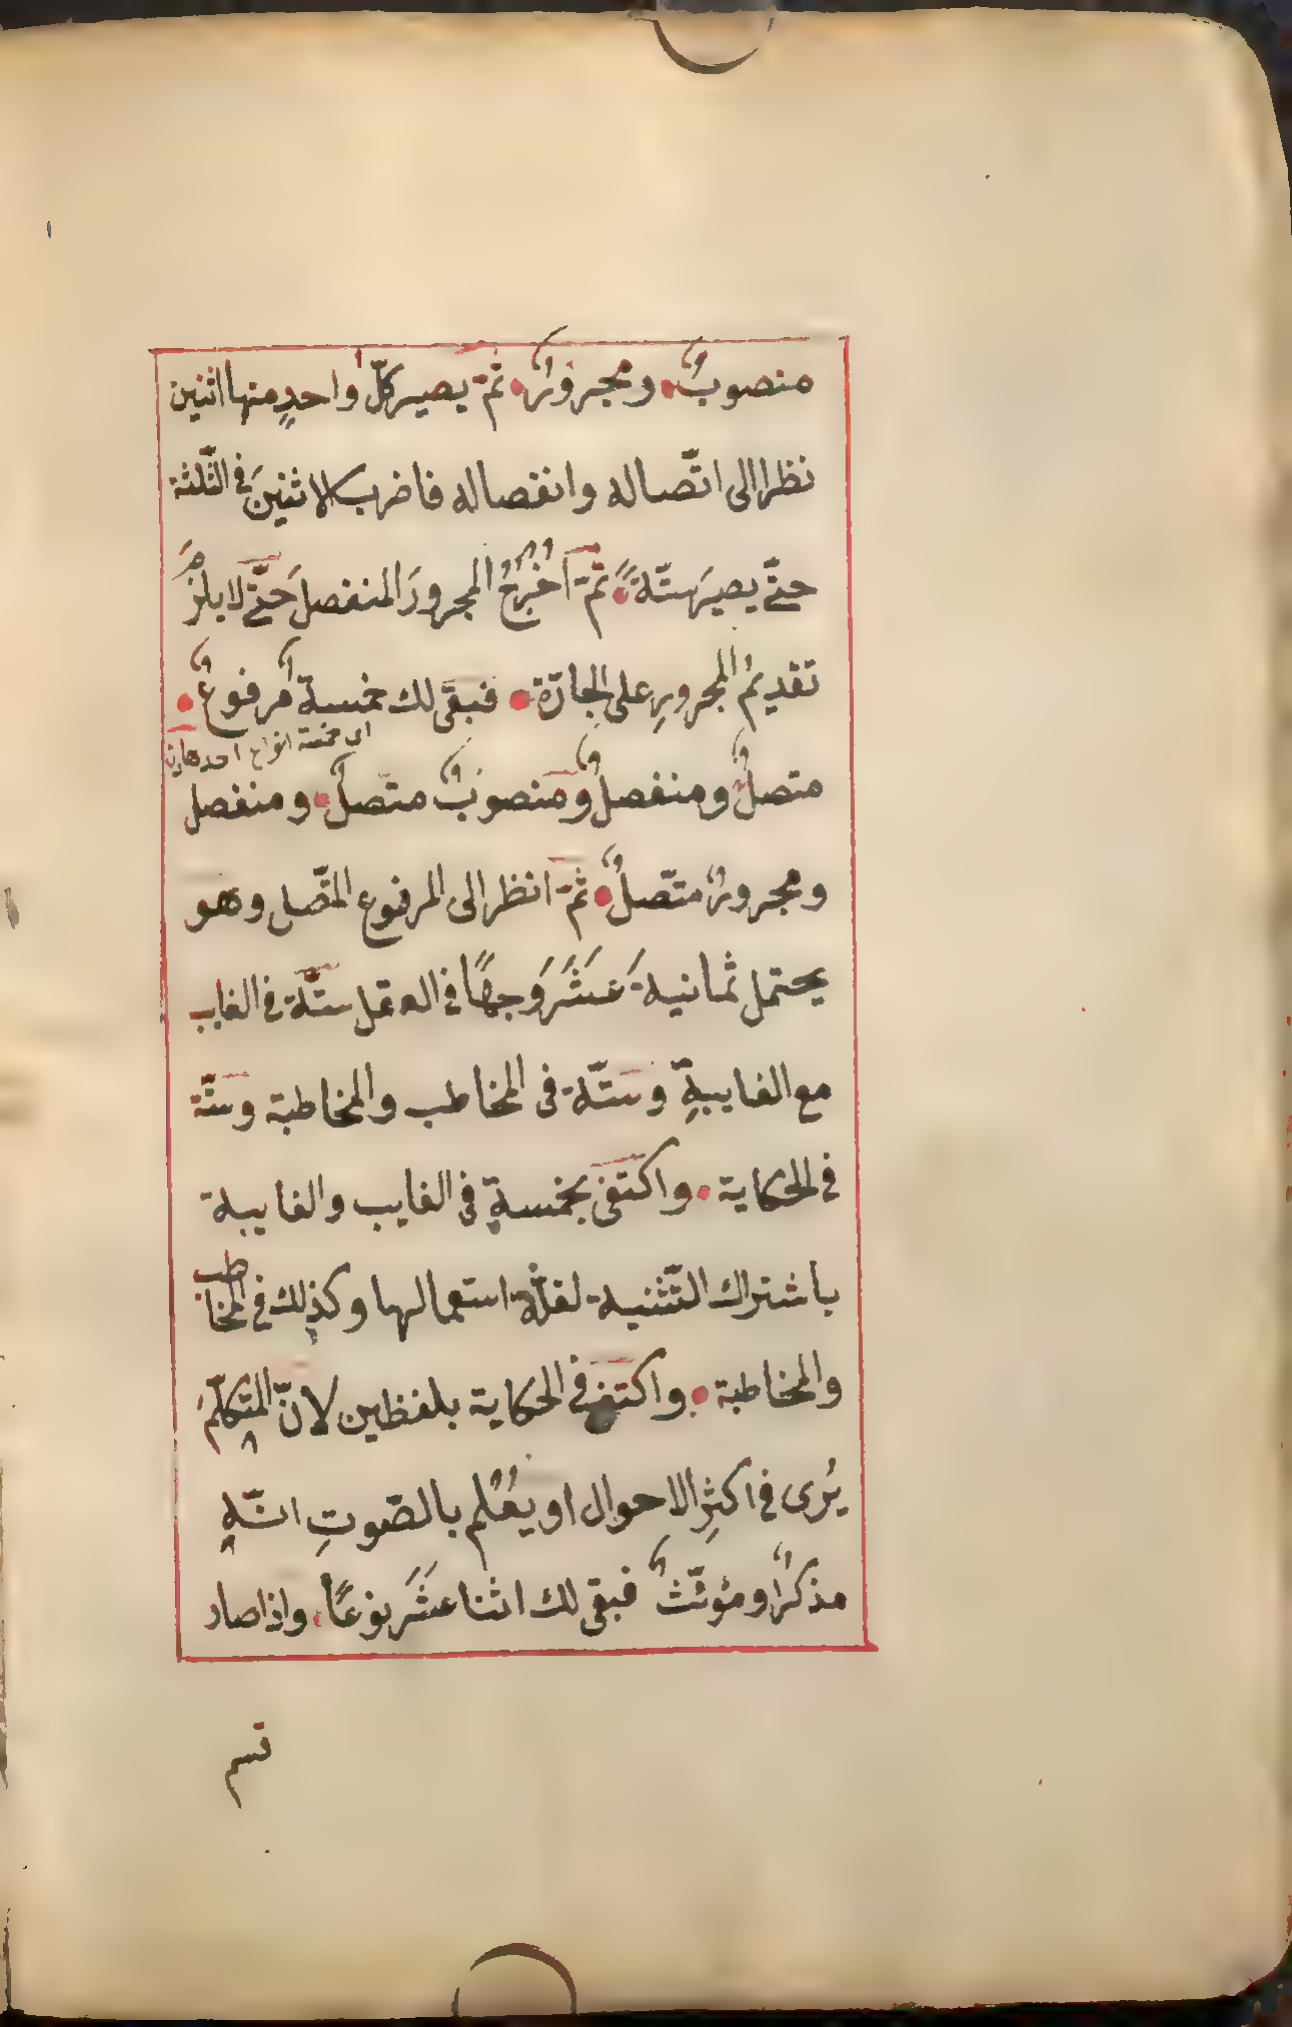 منصوبٌ ومجرورٌ ثمّ يصير كلّ واحدٍ منها اثنين
نظرا الى اتّصاله وانفصاله فاضرب الاثنينَ فى الثّلثة
حتّى يصيرَ ستّةً ثمّ اَخْرِجُ المجرورَ المنفصلَ حَتّى لا يلزمَ
تقديمُ المجرورِ على الجارّة فبقى لك خمسة مرفوعٌ
اى خمسة انواع احدها
متصلٌ ومنفصلٌ ومنصوبٌ متّصلٌ ومنفصل
ومجرورٌ متّصلٌ ثمّ انظر الى المرفوع المتّصل وهو
يحتمل ثمانيةَ عَشَرَ وَجهًا فى العقل ستّة فى الغايب
مع الغايبةِ وستّة فى المخاطب والمخاطبة وستّة
فى الحكاية واكتفى بخمسةٍ فى الغايب والغايبة
باشتراك التّثنية لقلّة استعمالها وكذلك فى المخاطب
والمخاطبة واكتفى فى الحكاية بلفظين لانّ المتكلّمَ
يُرى فى اكثرِ الاحوال او يُعْلم بالصّوتِ انّه
مذكرٌ او مؤنّثٌ فبقى لك اثنا عشَرَ نوعًا واذا صار
قسم